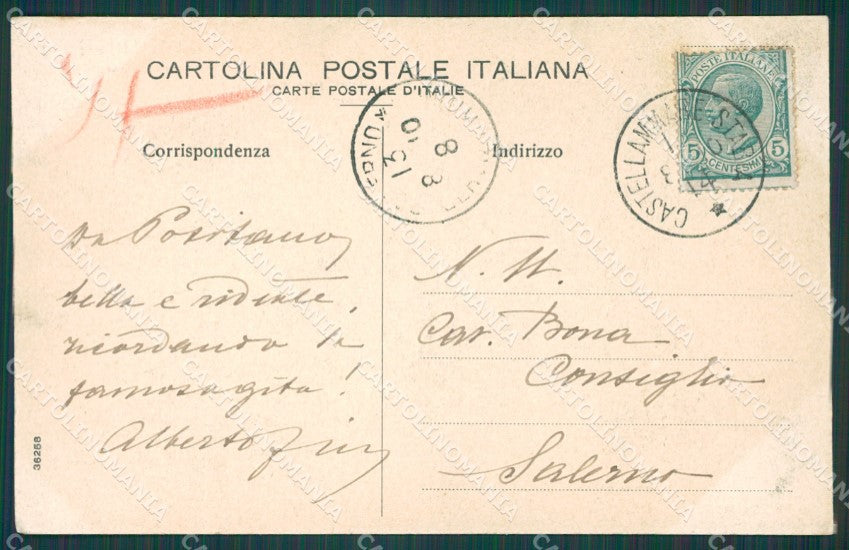 CARTOLINA POSTALE ITALIANA
CARTE POSTALE D'ITALIE
Corrispondenza
Indirizzo
POSTE ITALIANE
5 5
CENTESIMI
CASTELLAMMARE
8 8
13
Da Positano,
bella e ridente,
ricordando la
famosa gita!
Alberto
N. H.
Cav. Bona
Consiglio
Salerno
36258
CARTOLINOMANIA